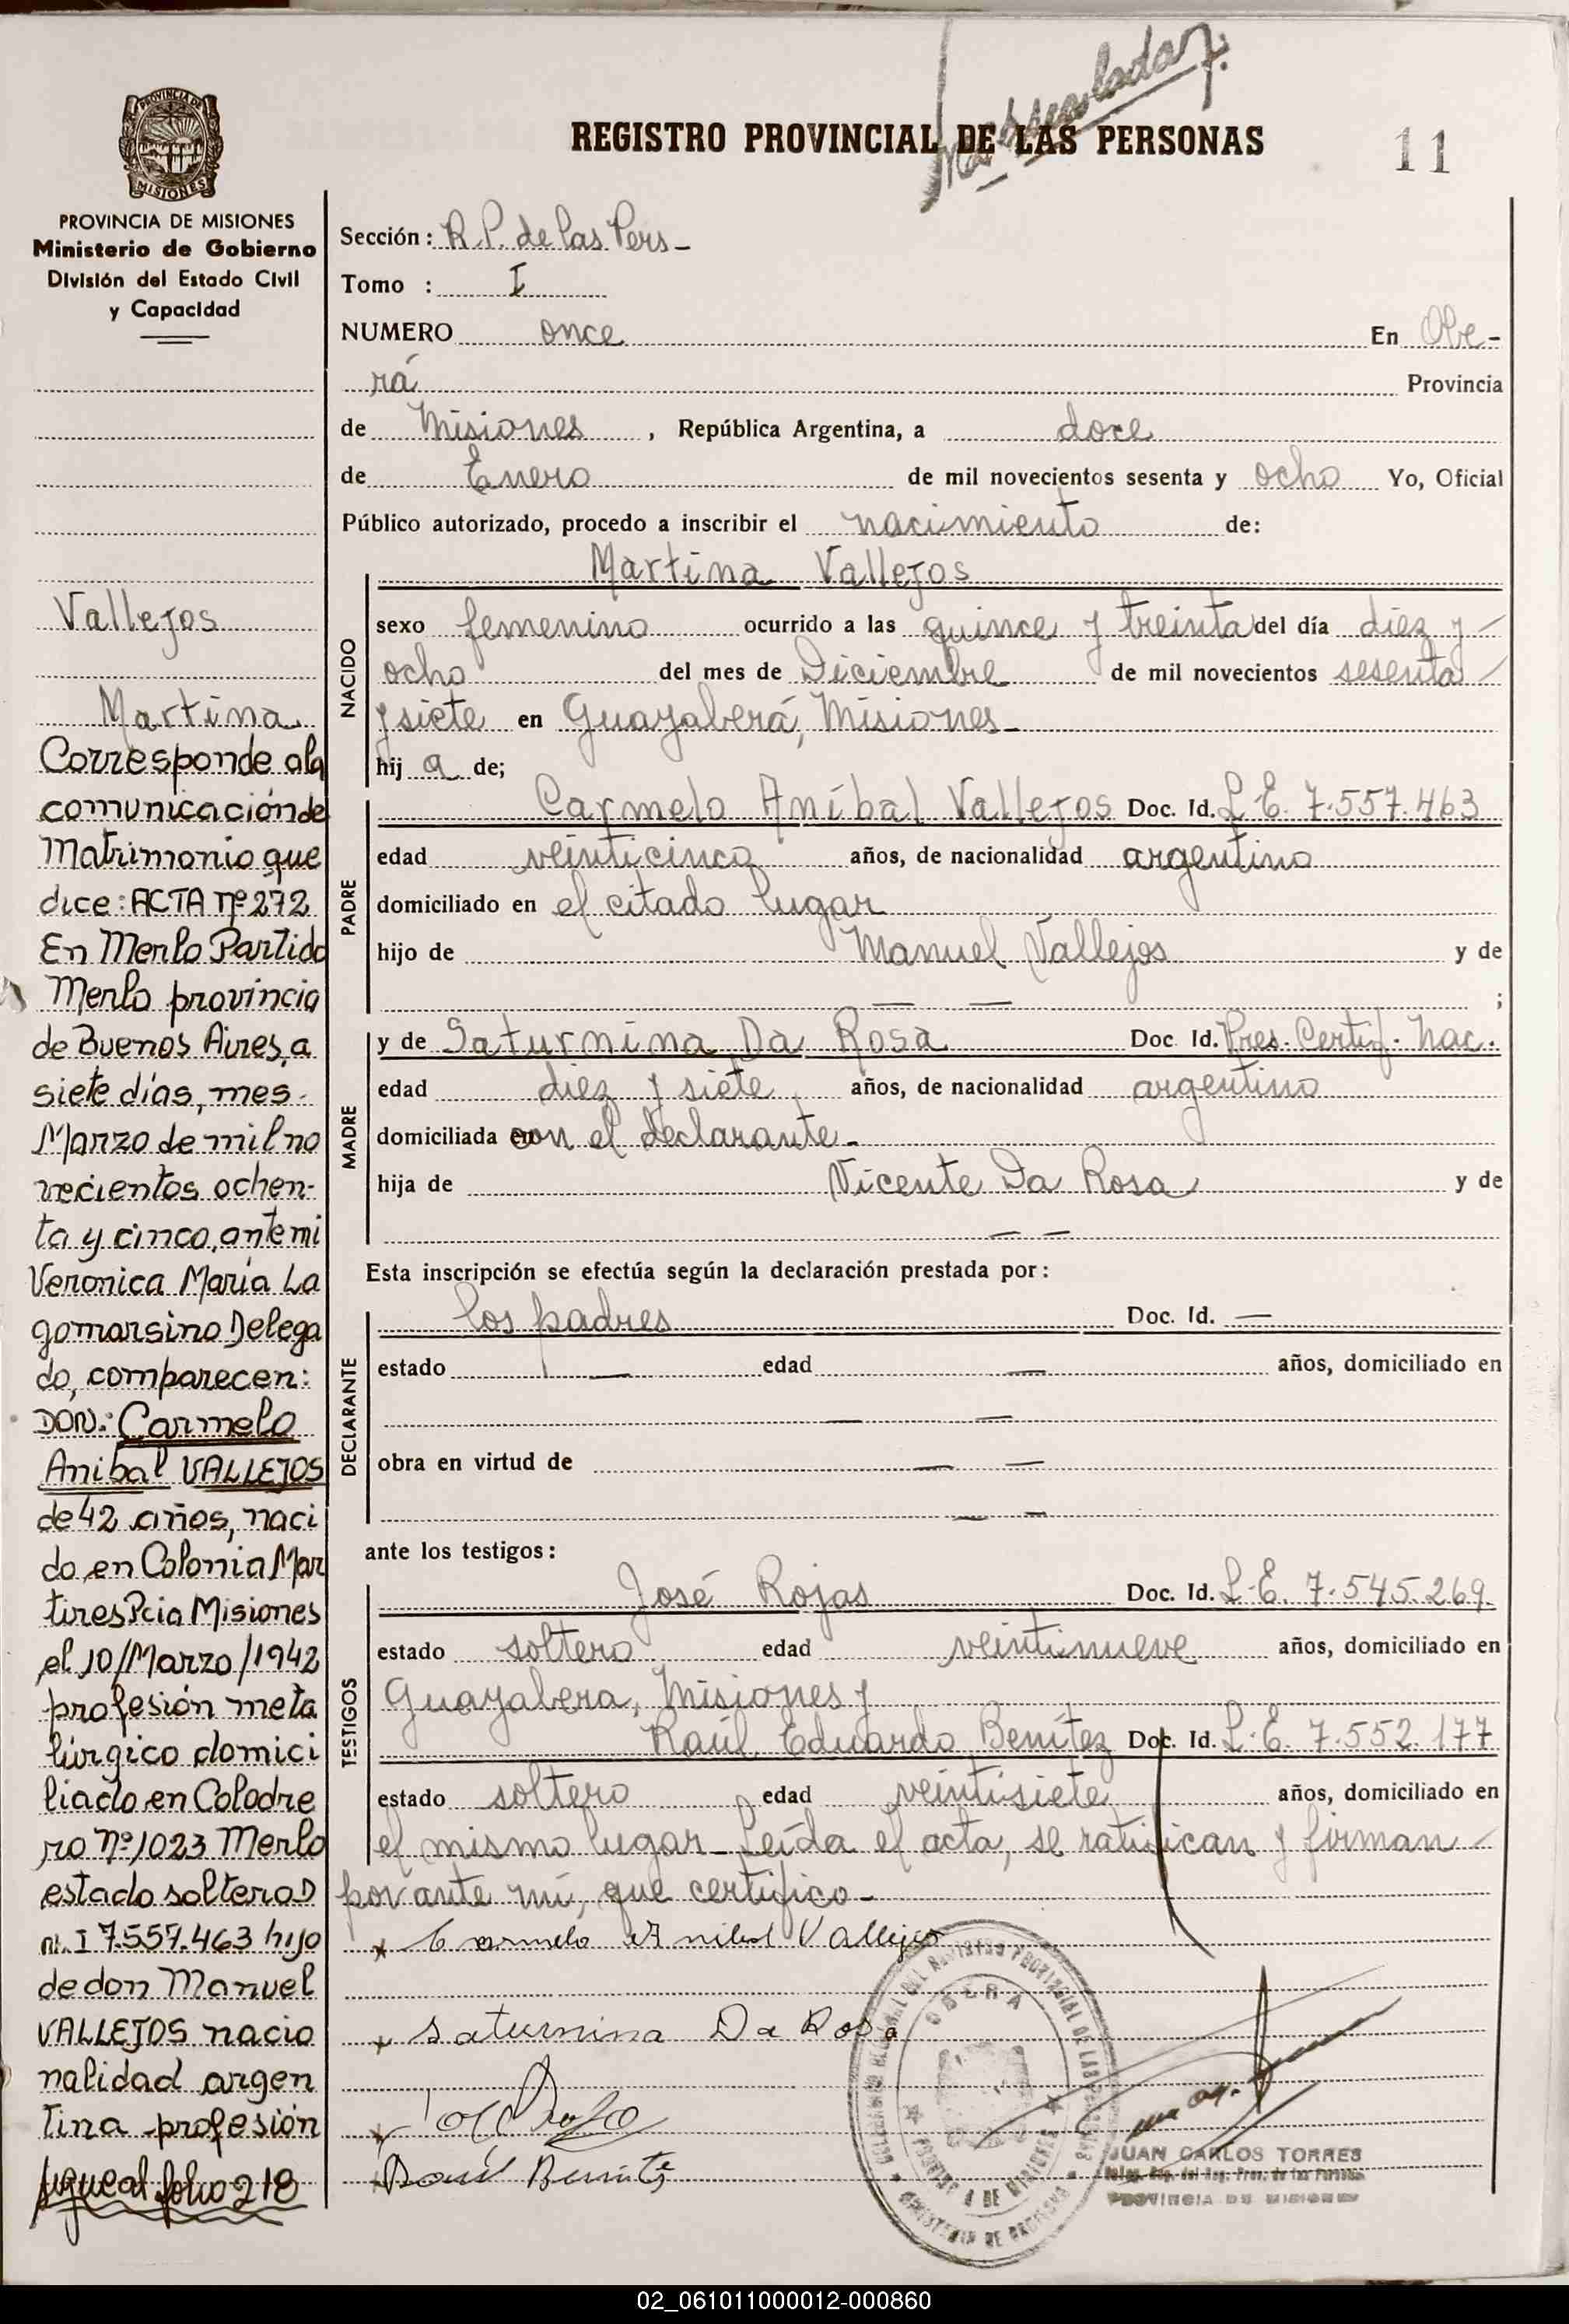 Matriculada
REGISTRO PROVINCIAL DE LAS PERSONAS
11
PROVINCIA DE
MISIONES
PROVINCIA DE MISIONES
Ministerio de Gobierno
División del Estado Civil
y Capacidad
Vallejos
Martina
Corresponde a la
comunicación de
Matrimonio que
dice: ACTA Nº 272
En Merlo Partido
Merlo provincia
de Buenos Aires, a
siete días, mes
Marzo de mil no
vecientos ochen-
ta y cinco, ante mi
Veronica María La
gomarsino Delega
do, comparecen:
DON: Carmelo
Anibal VALLEJOS
de 42 años, naci
do en Colonia Mar
tires Pcia Misiones
el 10/Marzo/1942
profesión meta
lúrgico domici
liado en Colodre
ro Nº 1023 Merlo
estado soltero D
N. I 7.557.463 hijo
de don Manuel
VALLEJOS nacio
nalidad argen
tina profesión
sigue al folio 218
Sección: R.P. de las Pers-
Tomo : I
NUMERO once En Obe-
rá Provincia
de Misiones , República Argentina, a doce
de Enero de mil novecientos sesenta y ocho Yo, Oficial
Público autorizado, procedo a inscribir el nacimiento de:
Martina Vallejos
NACIDO
sexo femenino ocurrido a las quince y treinta del día diez y
ocho del mes de Diciembre de mil novecientos sesenta
y siete en Guayaberá, Misiones-
hij a de;
PADRE
Carmelo Aníbal Vallejos Doc. Id. L.E. 7.557.463
edad veinticinco años, de nacionalidad argentino
domiciliado en el citado lugar
hijo de Manuel Vallejos y de
— — ;
MADRE
y de Saturnina Da Rosa Doc Id. Pres. Certif. Nac.
edad diez y siete años, de nacionalidad argentino
domiciliada con el declarante-
hija de Vicente Da Rosa y de
— —
Esta inscripción se efectúa según la declaración prestada por:
DECLARANTE
los padres Doc. Id. —
estado — edad — años, domiciliado en
— —
obra en virtud de — —
— —
ante los testigos:
TESTIGOS
José Rojas Doc. Id. L.E. 7.545.269
estado soltero edad veintinueve años, domiciliado en
Guayabera, Misiones y
Raúl Eduardo Benítez Doc. Id. L.E. 7.552.177
estado soltero edad veintisiete años, domiciliado en
el mismo lugar- Leída el acta, se ratifican y firman
por ante mí, que certifico-
Carmelo Anibal Vallejos
Saturnina Da Rosa
Raúl Benítez
OBERA
JUAN CARLOS TORRES
PROVINCIA DE MISIONES
02_061011000012-000860